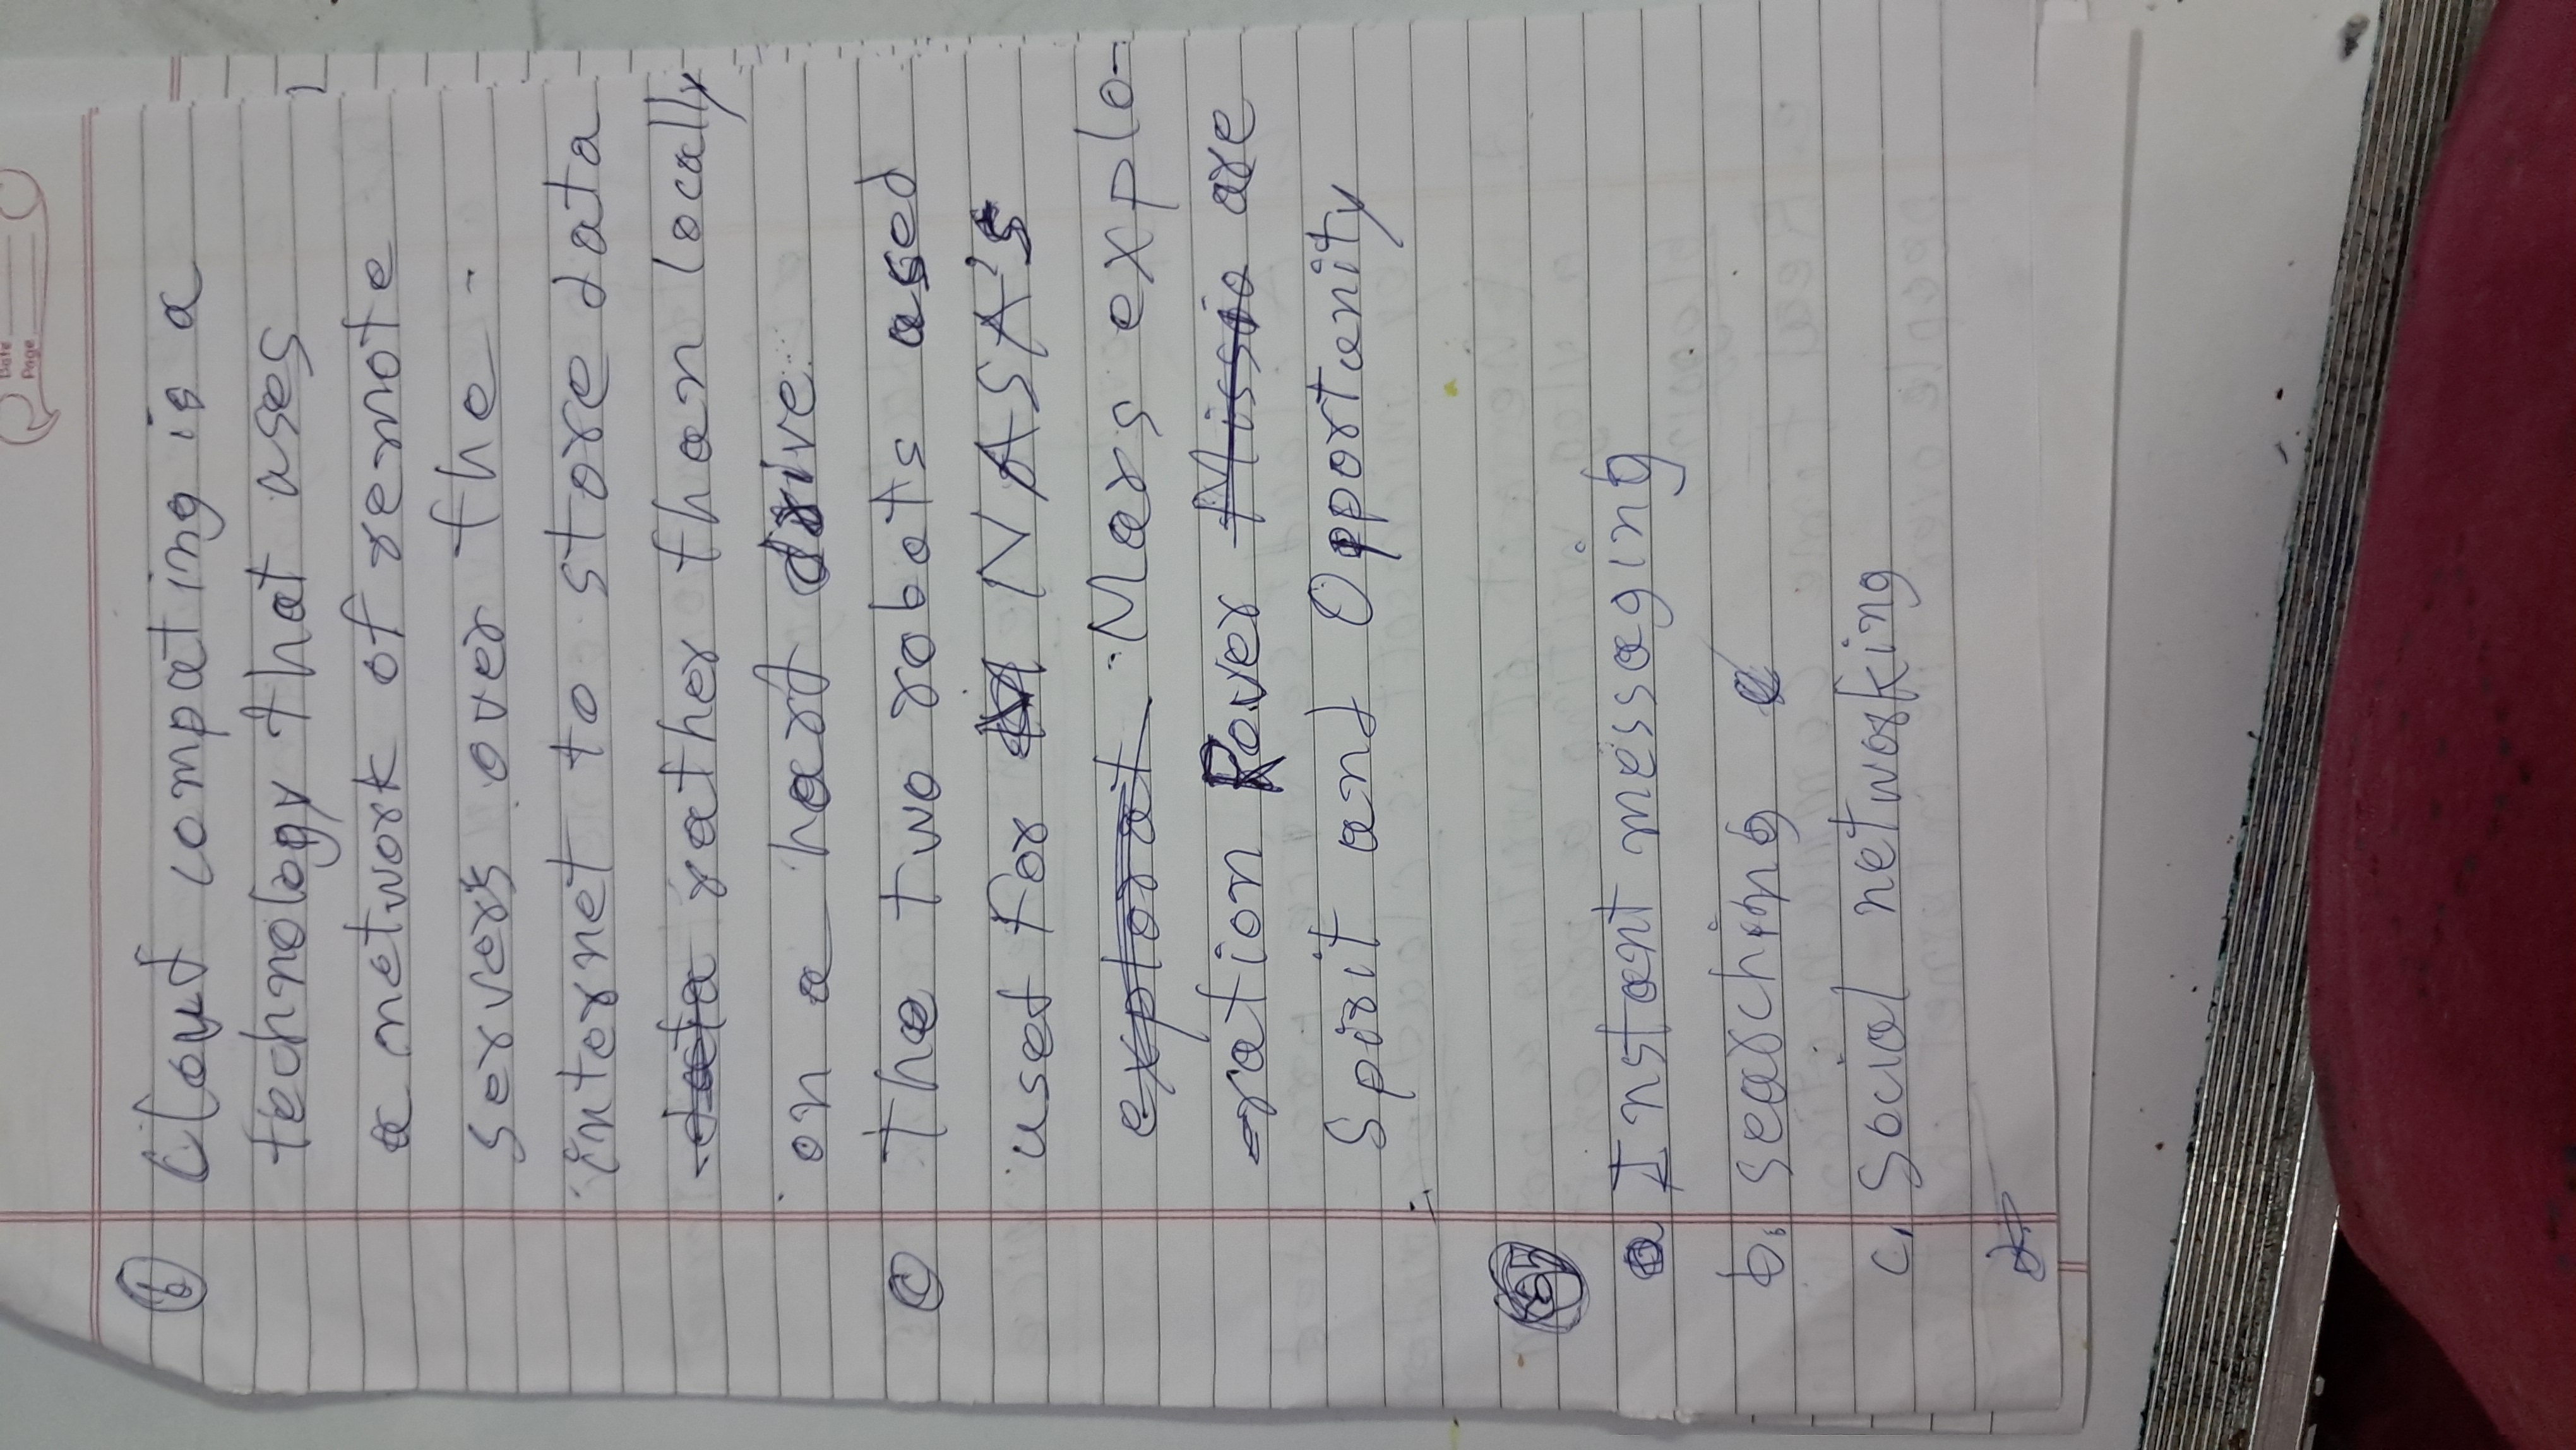 Date
Page
b Cloud compating is a
technology that ases
a network of remote
servers over the
internet to store data
data rather than locally
on a hard drive
c The two robots ased
used for NASA's
explorat Mars explo-
-ration Rover Missio are
Spirit and Opportunity
a Instant messaging
b. searching
c. Social networking